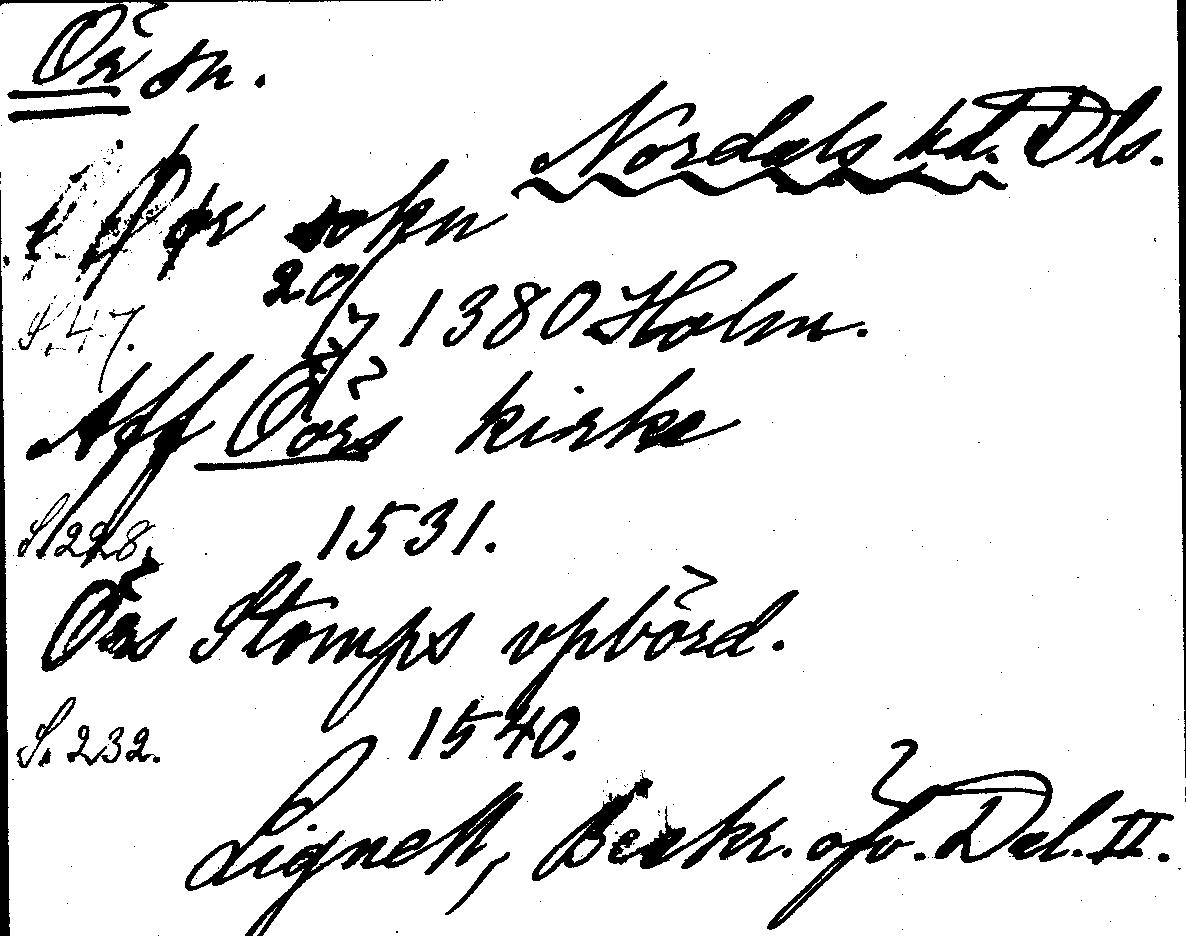 Ör sn.
Nordals hd. Dls.
i Ør sokn
S. 47. 20/7 1380 Holm.
Aff Öörs kirke
S. 228. 1531.
Örs Stomps vpbörd.
S. 232. 1540.
Lignell, Beskr. öfv. Dal. II.